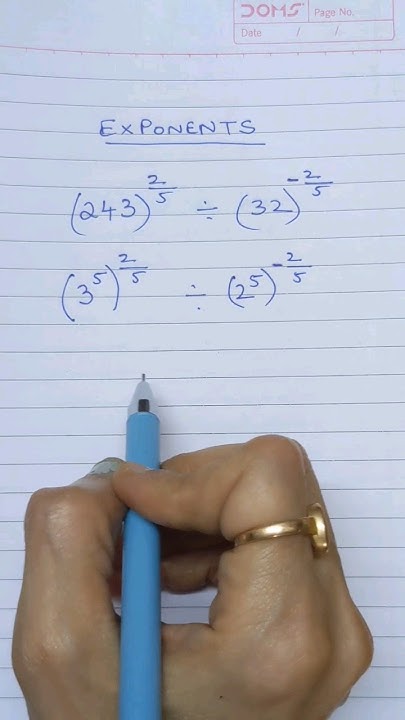 DOMS Page No.
Date / /
EXPONENTS
(243)^(2/5) ÷ (32)^(-2/5)
(3^5)^(2/5) ÷ (2^5)^(-2/5)